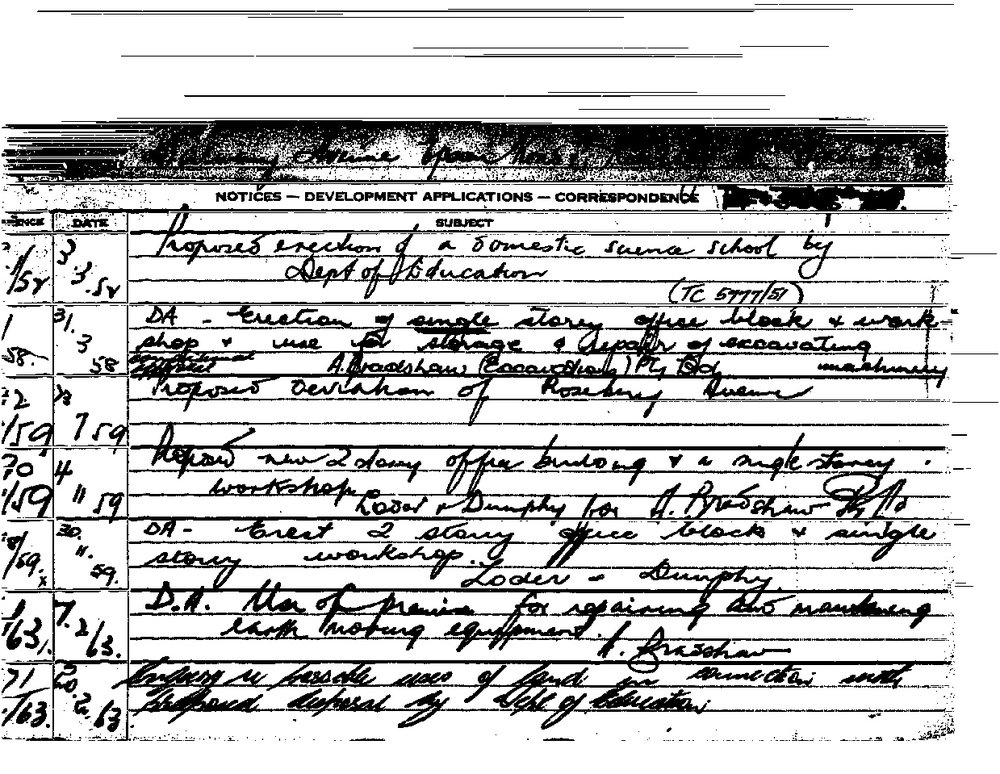 Avenue
NOTICES — DEVELOPMENT APPLICATIONS — CORRESPONDENCE
ENCE DATE SUBJECT
1/58 3.3.58 Proposed erection of a domestic science school by
Dept of Education
(TC 5777/51)
1 58. 31.3 58 DA - Erection of single storey office block & work-
shop & use for storage & repair of excavating
conditional A. Bradshaw (Excavations) Pty Ltd machinery
2/59 7 59 Proposed deviation of Rosebery Avenue
70/59 4 11 59 Proposed new 2 storey office building & a single storey
workshop Loder & Dunphy for A. Bradshaw P/L
/59. 30. 11. 59. DA - Erect 2 storey office block & single
storey workshop. Loder & Dunphy
1/63. 7. 2/63. D.A. Use of premises for repairing and maintaining
earth moving equipment. A. Bradshaw
71 /63. 20. 2. 63 Enquiry re possible uses of land in connection with
proposed disposal by Dept of Education